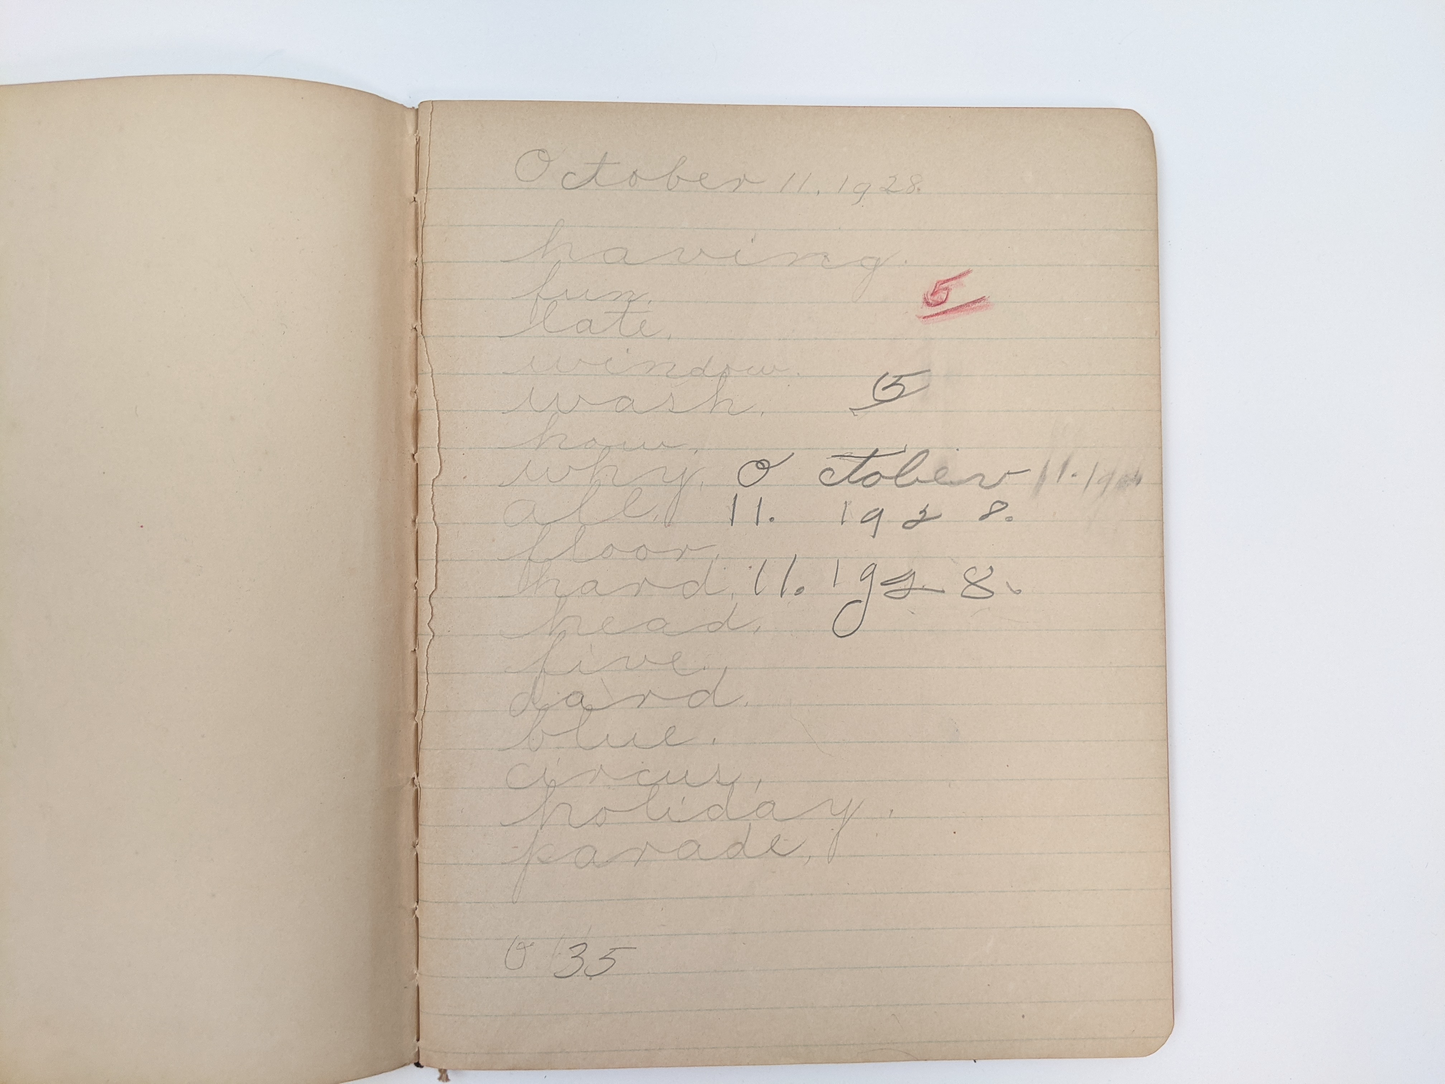 October 11. 1928.
having.
fun.
5
late.
window.
wash.
5
how.
why. October 11. 19
all. 11. 1928.
floor.
hard. 11. 1928.
head.
five.
dard.
blue.
circus.
holiday.
parade.
35